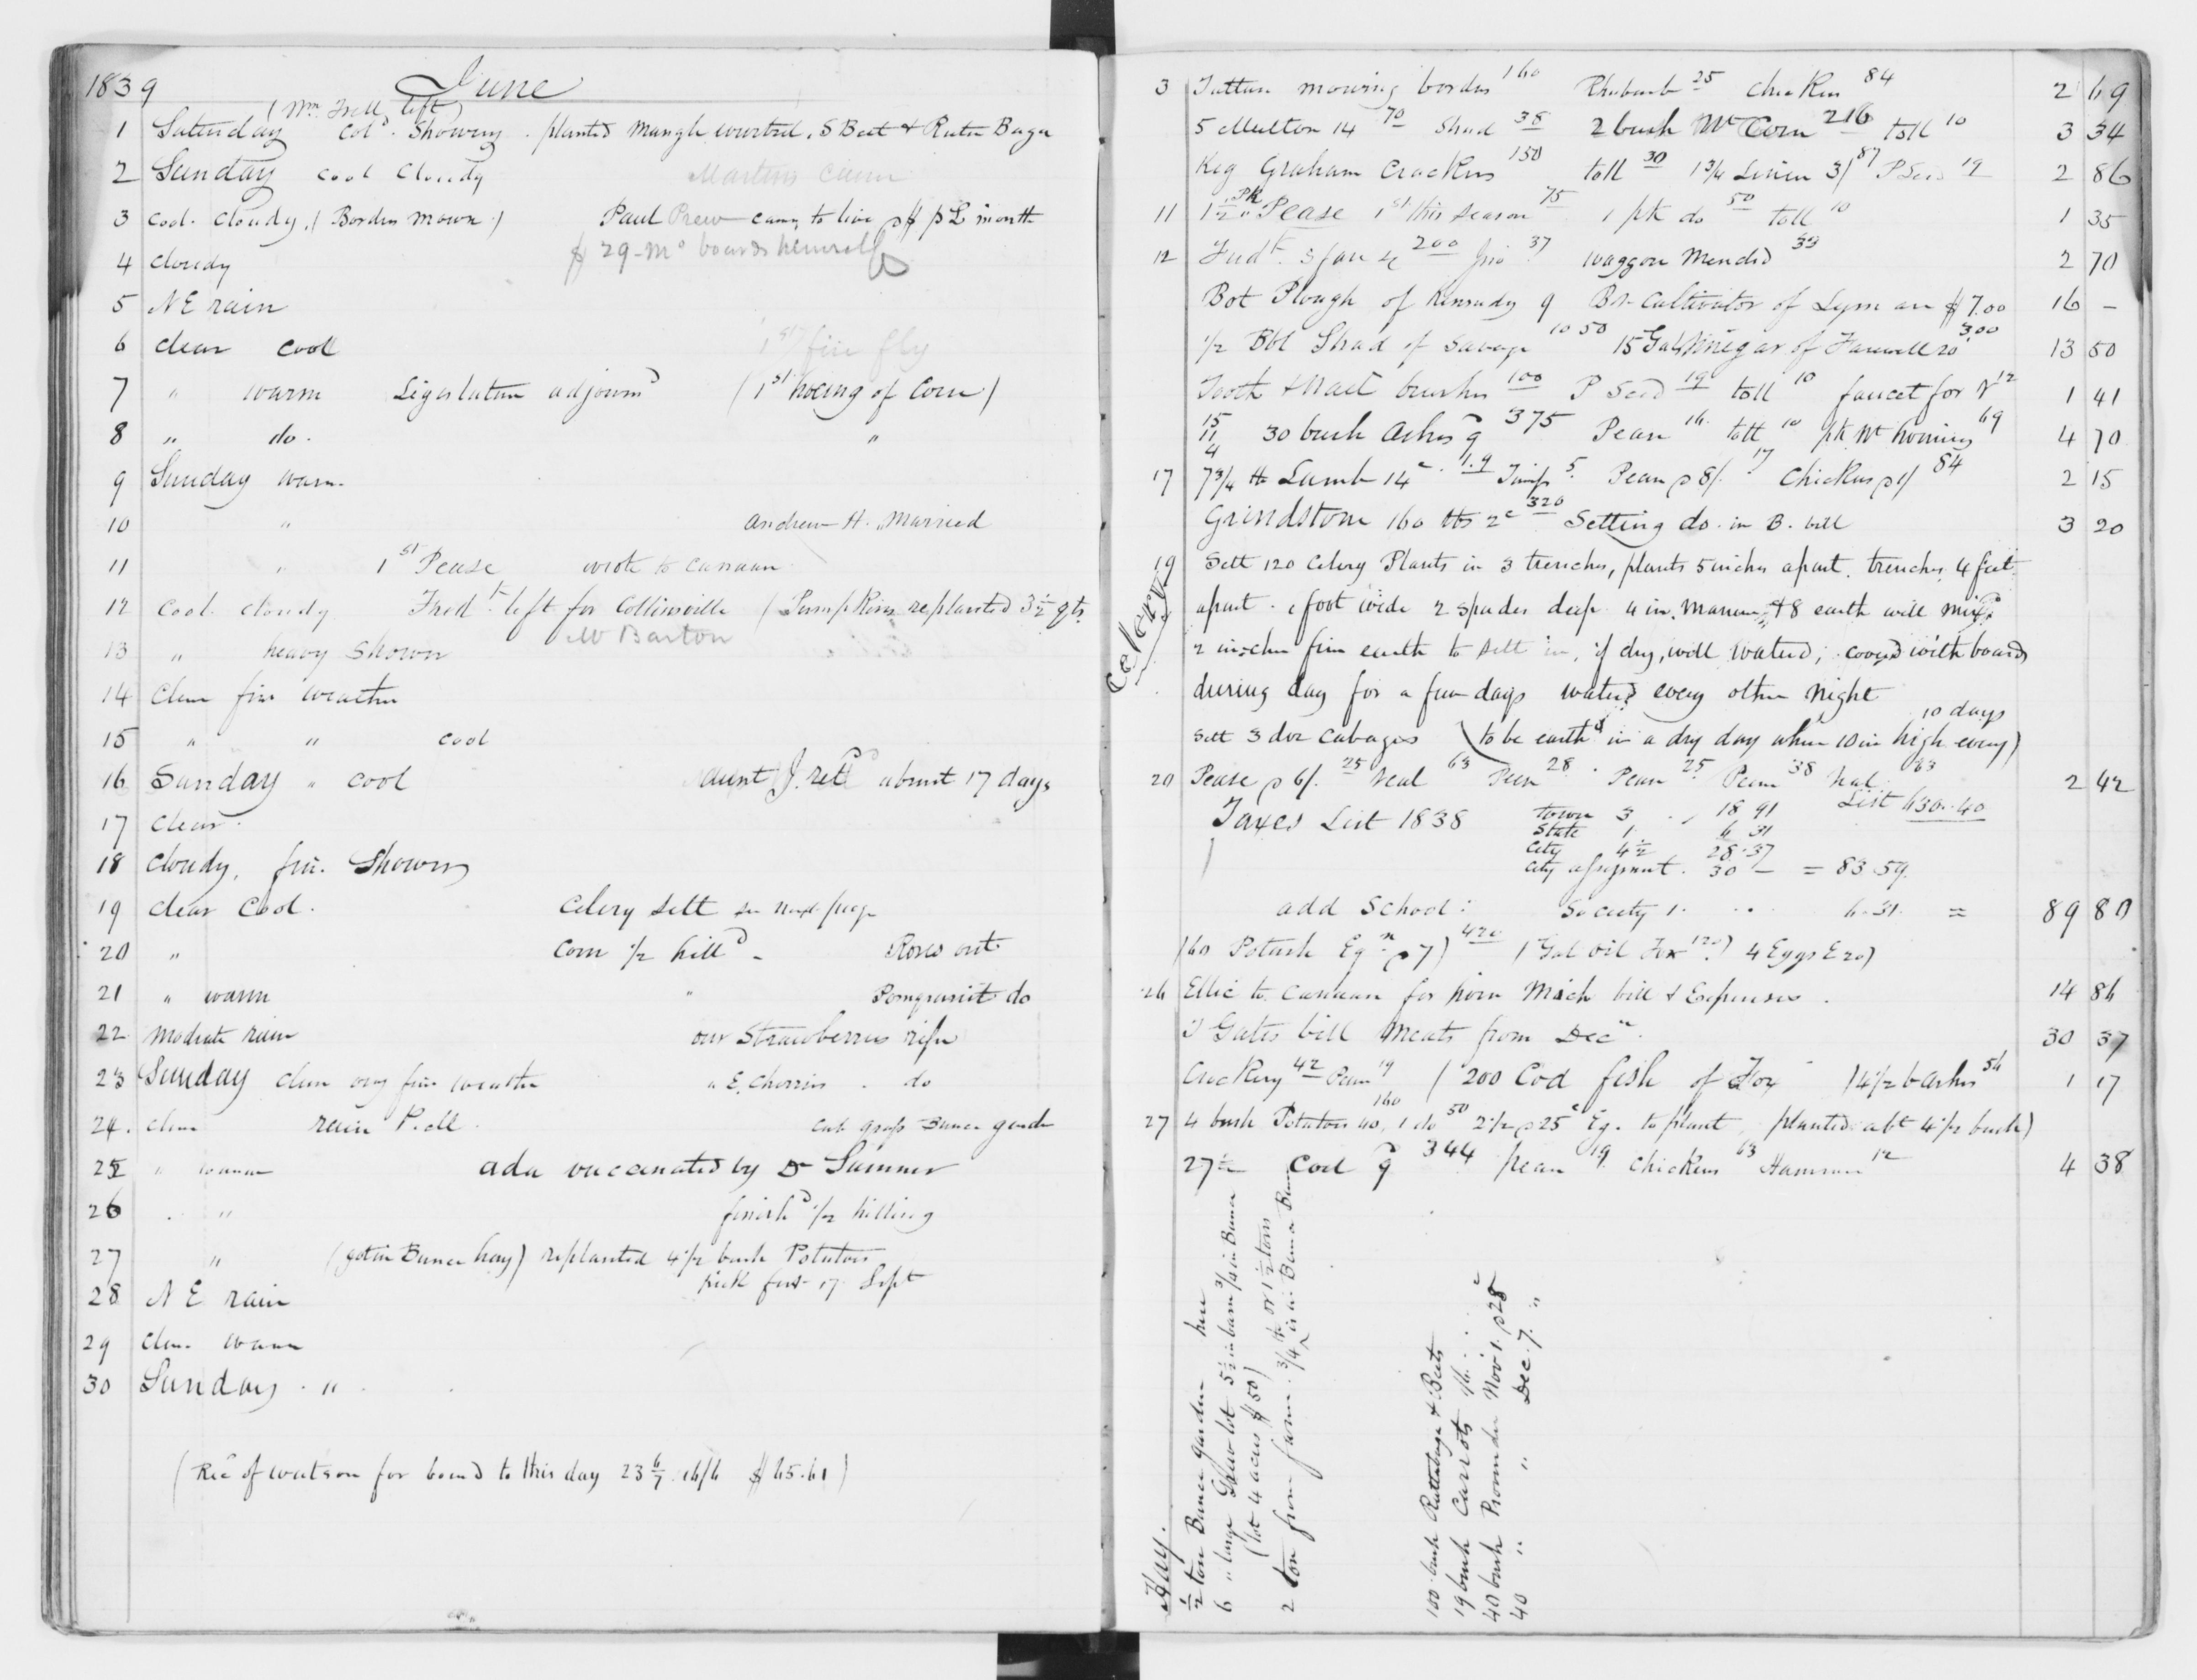 1839 June
(Wm Trell left)
1 Saturday cold. Showery. planted Mangle wurtzel, S Beet & Ruta Baga
2 Sunday cool Cloudy Martins came
3 cool. cloudy, (Borders mown) Paul Prew came to live
month
4 cloudy $ 29-mo boards himself
5 NE rain
6 clear cool 1st fire fly
7 " warm Ligislature adjournd (1st hoeing of Corn)
8 " do. "
9 Sunday warm
10 " Andrew H. Married
11 " 1st Pease wrote to Canaan
12 Cool. cloudy Fredk left for Collinsville (Pumpkins replanted 3 1/2 qts
13 " heavy Shower W Barton
14 Clear fine weather
15 " " cool
16 Sunday " cool aunt J. retd absent 17 days
17 Clear.
18 Cloudy, fine Showers
19 clear Cool. Celery sett see next page
20 " Corn 1/2 hilld - Roses out
21 " warm " Pomgranit do
22 Modrate rain our Strawberries ripe
23 Sunday clear very fine weather " E. Cherries . do
24. clear rain P.M. cut grass Bunce garde
25 " warm Ada vaccinated by Dr Sumner
26 . " finishd 1/2 hilling
27 " (got in Bunce hay) replanted 4 1/2 bush Potatoes
pick first 17 Sept
28 N E rain
29 clear warm
30 Sunday . " .
(Recd of Watson for board to this day 23 6/7 16/6 $65.61)
3 mowing borders 160 Rhubarb 25 Chicken 84 2 69
5 Mutton 14 70 Shad 38 2 bush Wt Corn 216 toll 10 3 34
Keg Graham Crackers 150 toll 30 1 3/4 Linen 3/ 87 P Seed 19 2 86
11 1 1/2 Pk Pease 1st this season 75 1 pk do 50 toll 10 1 35
12 Fredk 200 37 waggon Mended 33 2 70
Bot Plough of Kennedy 9 Bot Cultivator of Lyman $7.00 16 -
1/2 Bbl Shad of Savage 10 50 15 Gals Vinegar of Farewell 20 3.00 13 50
Tooth & Nail brushes 100 P Seed 19 toll 10 faucet for V 12 1 41
30 bush Ashes 375 Pease 16 toll 10 pk Wt hominy 69 4 70
17 7 3/4 lb Lamb 14c 1.9 5 Pease 8/. 17 Chickens 1/ 84 2 15
Grindstone 160 lbs 2c 320 Setting do. in B. bill 3 20
Celery
19 Sett 120 Celery Plants in 3 trenches, plants 5 inches apart. trenches 4 feet
apart. 1 foot wide 2 spades deep 4 in. Manure & 8 earth well mixd
2 inches fine earth to sett in, if dry, well waterd, coverd with boards
during day for a few days waterd every other night
10 days
Sett 3 doz Cabages (to be earthd in a dry day when 10 in high every)
20 Pease 6/. 25 Veal 63 Pease 28 Pease 25 Pease 38 Veal 63 2 42
Taxes List 1838 Town 3 18 91 List 630.40
State 1 6 31
City 4 1/2 28.37
City assessment. 30 - = 83.59.
add School Society 1. 6.31. = 89 80
(60 Potash Egn 7) 420 (Gal oil Fox 120) 4 Eggs E 20)
26 Ellie to Canaan for horn Mich bill & Expenses . 14 86
Gates bill Meats from Decr 30 37
Crockery 42 Pease 19 (200 Cod fish of Fox 14 1/2 b ashes 54 1 17
27 4 bush Potatoes 40, 160 1 do 50 2 1/2 25c Eg. to plant planted abt 4 1/2 bush)
27 1/2 Coal 344 pease 19 Chickens 63 Hammer 12 4 38
Hay.
1/2 ton Bunce garden here
6 " large lot 5 1/2 in barn 3/4 in Bunce
(lot 4 acres $50)
2 ton from farm. 3/4 or 1 1/2 tons is in Bunce Barn
100 bush Rutabaga & Beets
19 bush Carrots
40 bush Provender Novr 1. 28c
40 " " Dec 7. "